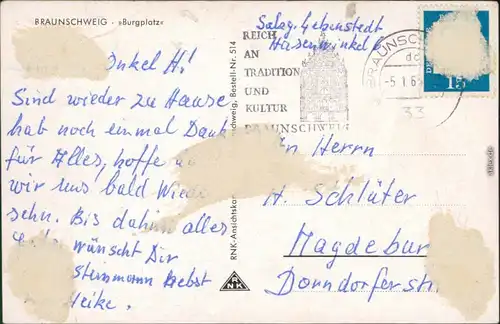 BRAUNSCHWEIG - »Burgplatz«
Onkel H!
Sind wieder zu Hause
hab noch einmal Dank
für Alles, hoffe
wir uns bald Wieder
sehn. Bis dahin alles
wünscht Dir
Heike.
RNK-Ansichtskar
schweig, Bestell-Nr. 514
RNK
REICH
AN
TRADITION
UND
KULTUR
BRAUNSCHWEIG
BRAUNSCH
-5.1.6
33
15
Hasenwinkel 6
Herrn
H. Schlüter
Magdebur
Dorndorferstr